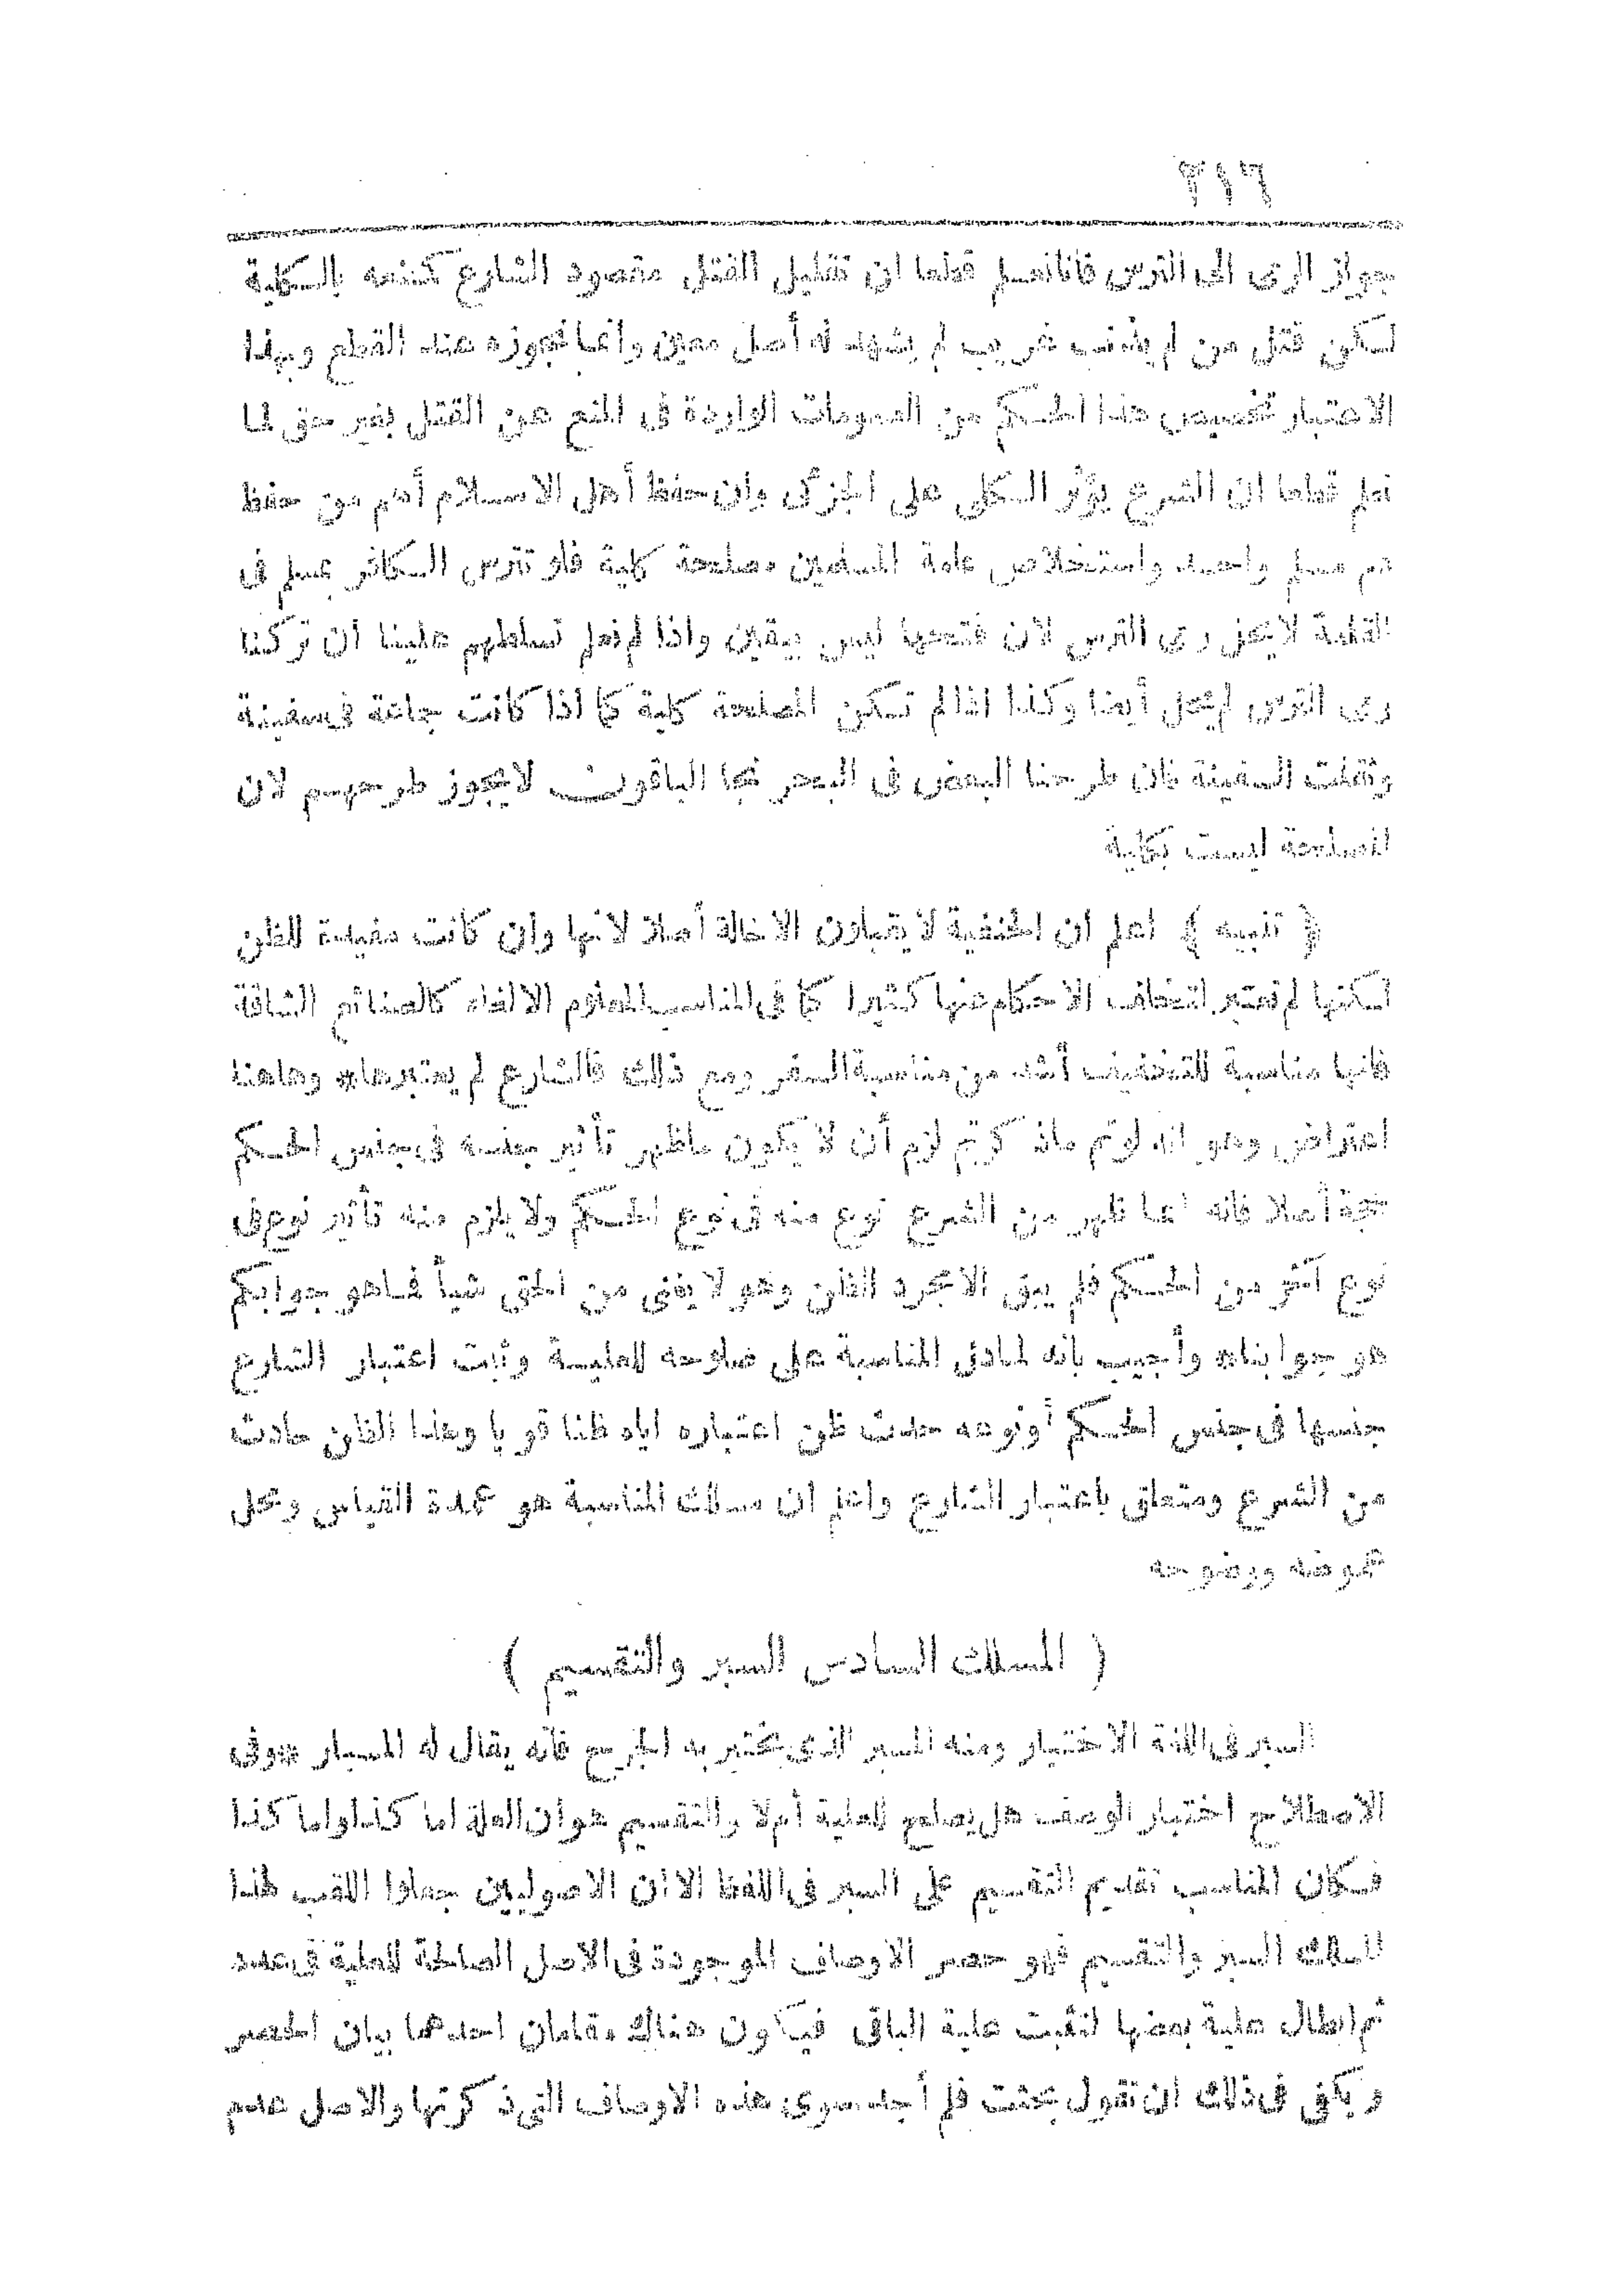 ٣١٦
بجواز الرمى الى الترس فانا نعلم قطعا ان تقليل القتل مقصود الشارع كمنعه بالكلية
لكن قتل من لم يذنب غريب لم يشهد له أصل معين وانما نجوزه عند القطع وبهذا
الاعتبار تخصيص هذا الحكم من العمومات الواردة فى المنع عن القتل بغير حق لما
نعلم قطعا ان الشرع يؤثر الكلى على الجزئى وان حفظ أهل الاسلام أهم من حفظ
دم مسلم واحد واستخلاص عامة المسلمين مصلحة كلية فلو تترس الكافر بمسلم فى
القلعة لا يحل رمى الترس لان فتحها ليس بيقين واذا لم نعلم تسلطهم علينا ان تركنا
رمى الترس لم يحل أيضا وكذا اذا لم تكن المصلحة كلية كما اذا كانت جماعة فى سفينة
وثقلت السفينة فان طرحنا البعض فى البحر نجا الباقون لا يجوز طرحهم لان
المصلحة ليست بكلية
﴿ تنبيه ﴾ اعلم ان الحنفية لا يقبلون الاخالة أصلا لانها وان كانت مفيدة للظن
لكنها لم تعتبر لتخلف الاحكام عنها كثيرا كما فى المناسب المعلوم الالغاء كالصنائع الشاقة
فانها مناسبة للتخفيف أشد من مناسبة السفر ومع ذلك فالشارع لم يعتبرها * وهاهنا
اعتراض وهو انه لو تم ما ذكرتم لزم أن لا يكون ما ظهر تأثير جنسه فى جنس الحكم
حجة أصلا فانه انما ظهر من الشرع نوع منه فى نوع الحكم ولا يلزم منه تأثير نوع فى
نوع آخر من الحكم فلم يبق الا مجرد الظن وهو لا يغنى من الحق شيأ فما هو جوابكم
هو جوابنا * وأجيب بانه لما دل المناسبة على صلوحه للعلية وثبت اعتبار الشارع
جنسها فى جنس الحكم أو نوعه حدث ظن اعتباره اياه ظنا قويا وهذا الظن حادث
من الشرع ومتعلق باعتبار الشارع واعلم ان مسلك المناسبة هو عمدة القياس ومحل
غموضه ووضوحه
( المسلك السادس السبر والتقسيم )
السبر فى اللغة الاختبار ومنه المسبر الذى يختبر به الجرح فانه يقال له المسبار * وفى
الاصطلاح اختبار الوصف هل يصلح للعلية أم لا والتقسيم هو ان العلة اما كذا واما كذا
فكان المناسب تقديم التقسيم على السبر فى اللفظ الا ان الاصوليين جعلوا اللقب لهذا
المسلك السبر والتقسيم فهو حصر الاوصاف الموجودة فى الاصل الصالحة للعلية فى عدد
ثم ابطال علية بعضها لتثبت علية الباقى فيكون هناك مقامان احدهما بيان الحصر
ويكفى فى ذلك ان تقول بحثت فلم أجد سوى هذه الاوصاف التى ذكرتها والاصل عدم